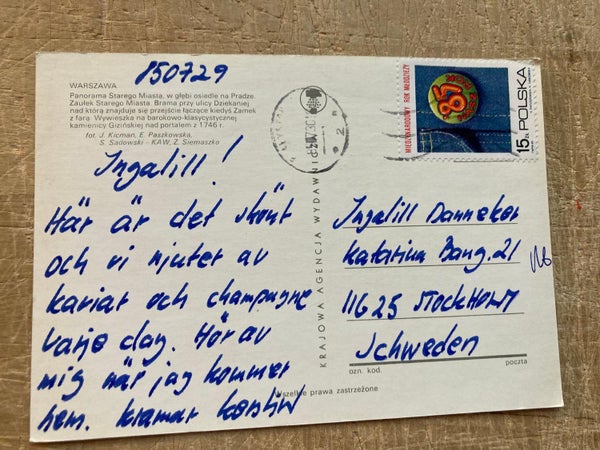 850729
WARSZAWA
Panorama Starego Miasta, w głębi osiedle na Pradze.
Zaułek Starego Miasta. Brama przy ulicy Dziekaniej
nad którą znajduje się przejście łączące kiedyś Zamek
z farą. Wywieszka na barokowo-klasycystycznej
kamienicy Gizińskiej nad portalem z 1746 r.
fot. J. Kicman, E. Paszkowska,
S. Sadowski - KAW, Z. Siemaszko
Ingalill!
Här är det skönt
och vi njuter av
kaviar och champagne
varje dag. Hör av
mig när jag kommer
hem. Kramar
KRAJOWA AGENCJA WYDAWNICZA
MIĘDZYNARODOWY ROK MŁODZIEŻY
85
15 ZŁ POLSKA
Ingalill Danneker
Katarina Bang. 21
116 25 STOCKHOLM
Schweden
ozn. kod.
poczta
Wszelkie prawa zastrzeżone